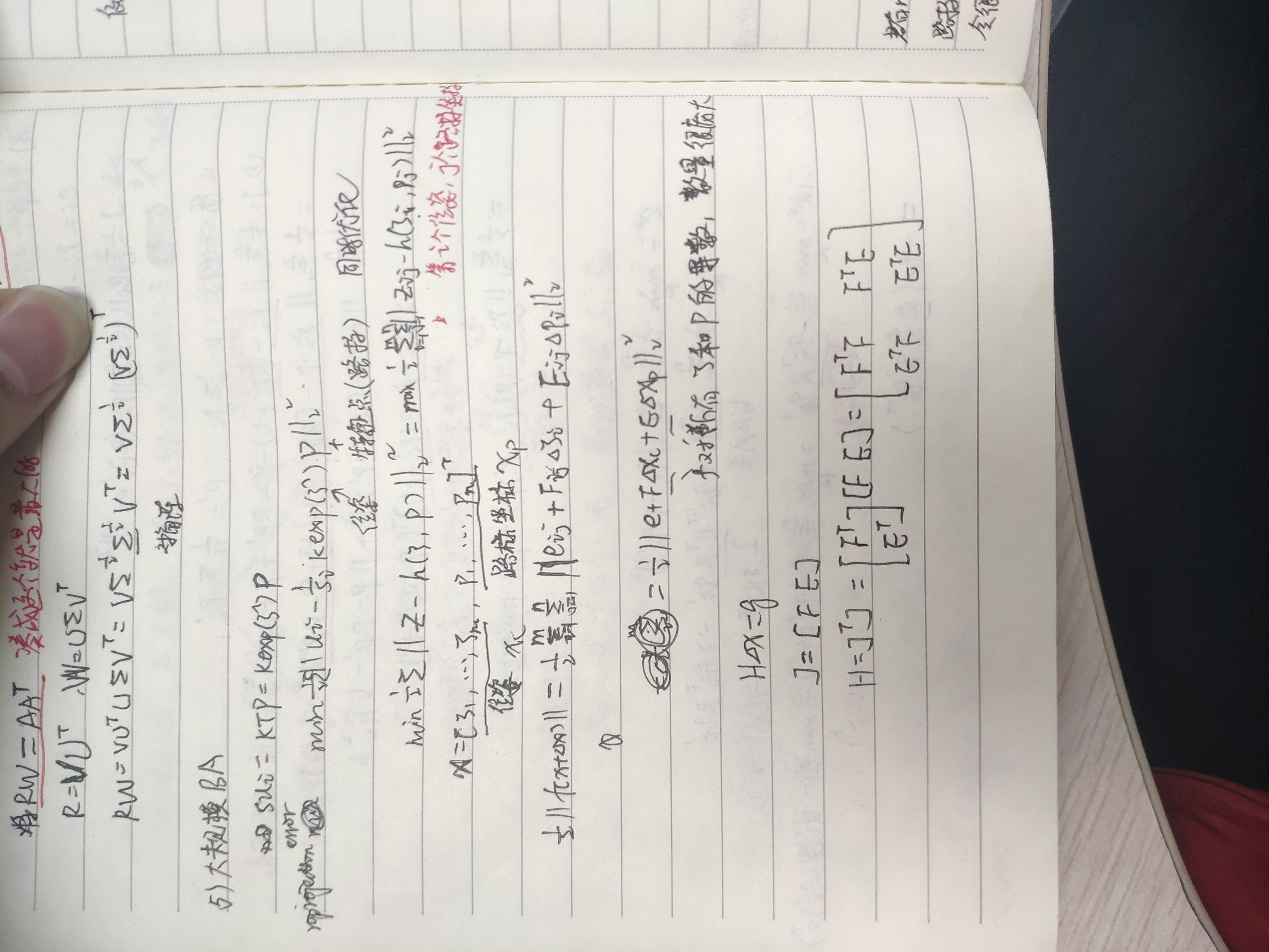 将RW = AAᵀ 凑成这个状是最大的
R = VUᵀ W = UΣVᵀ
RW = VUᵀUΣVᵀ = VΣ^½ Σ^½ Vᵀ = VΣ^½ (VΣ^½)ᵀ
5) 大规模BA
sᵢuᵢ = KTP = Kexp(ξ^)P
reprojection error min ½Σ||uᵢ - 1/sᵢ Kexp(ξ^)P||₂²
位姿 特征点(路标) 同时优化
min ½Σ||z - h(ξ, p)||₂² = max ½ΣΣ||zᵢⱼ - h(ξᵢ, pⱼ)||₂²
第i个位姿, j个路标坐标
x = [ξ₁, ..., ξₘ, p₁, ..., pₙ]ᵀ
位姿 xc 路标坐标 xp
½||f(x+Δx)|| = ½ΣΣ||eᵢⱼ + FᵢⱼΔξᵢ + EᵢⱼΔpⱼ||₂²
= ½||e + FΔxc + EΔxp||₂²
对所有ξ和P的导数, 数量很庞大
HΔx = g
J = [F E]
H = JᵀJ = [Fᵀ Eᵀ] [F E] = [FᵀF FᵀE
EᵀF EᵀE] =